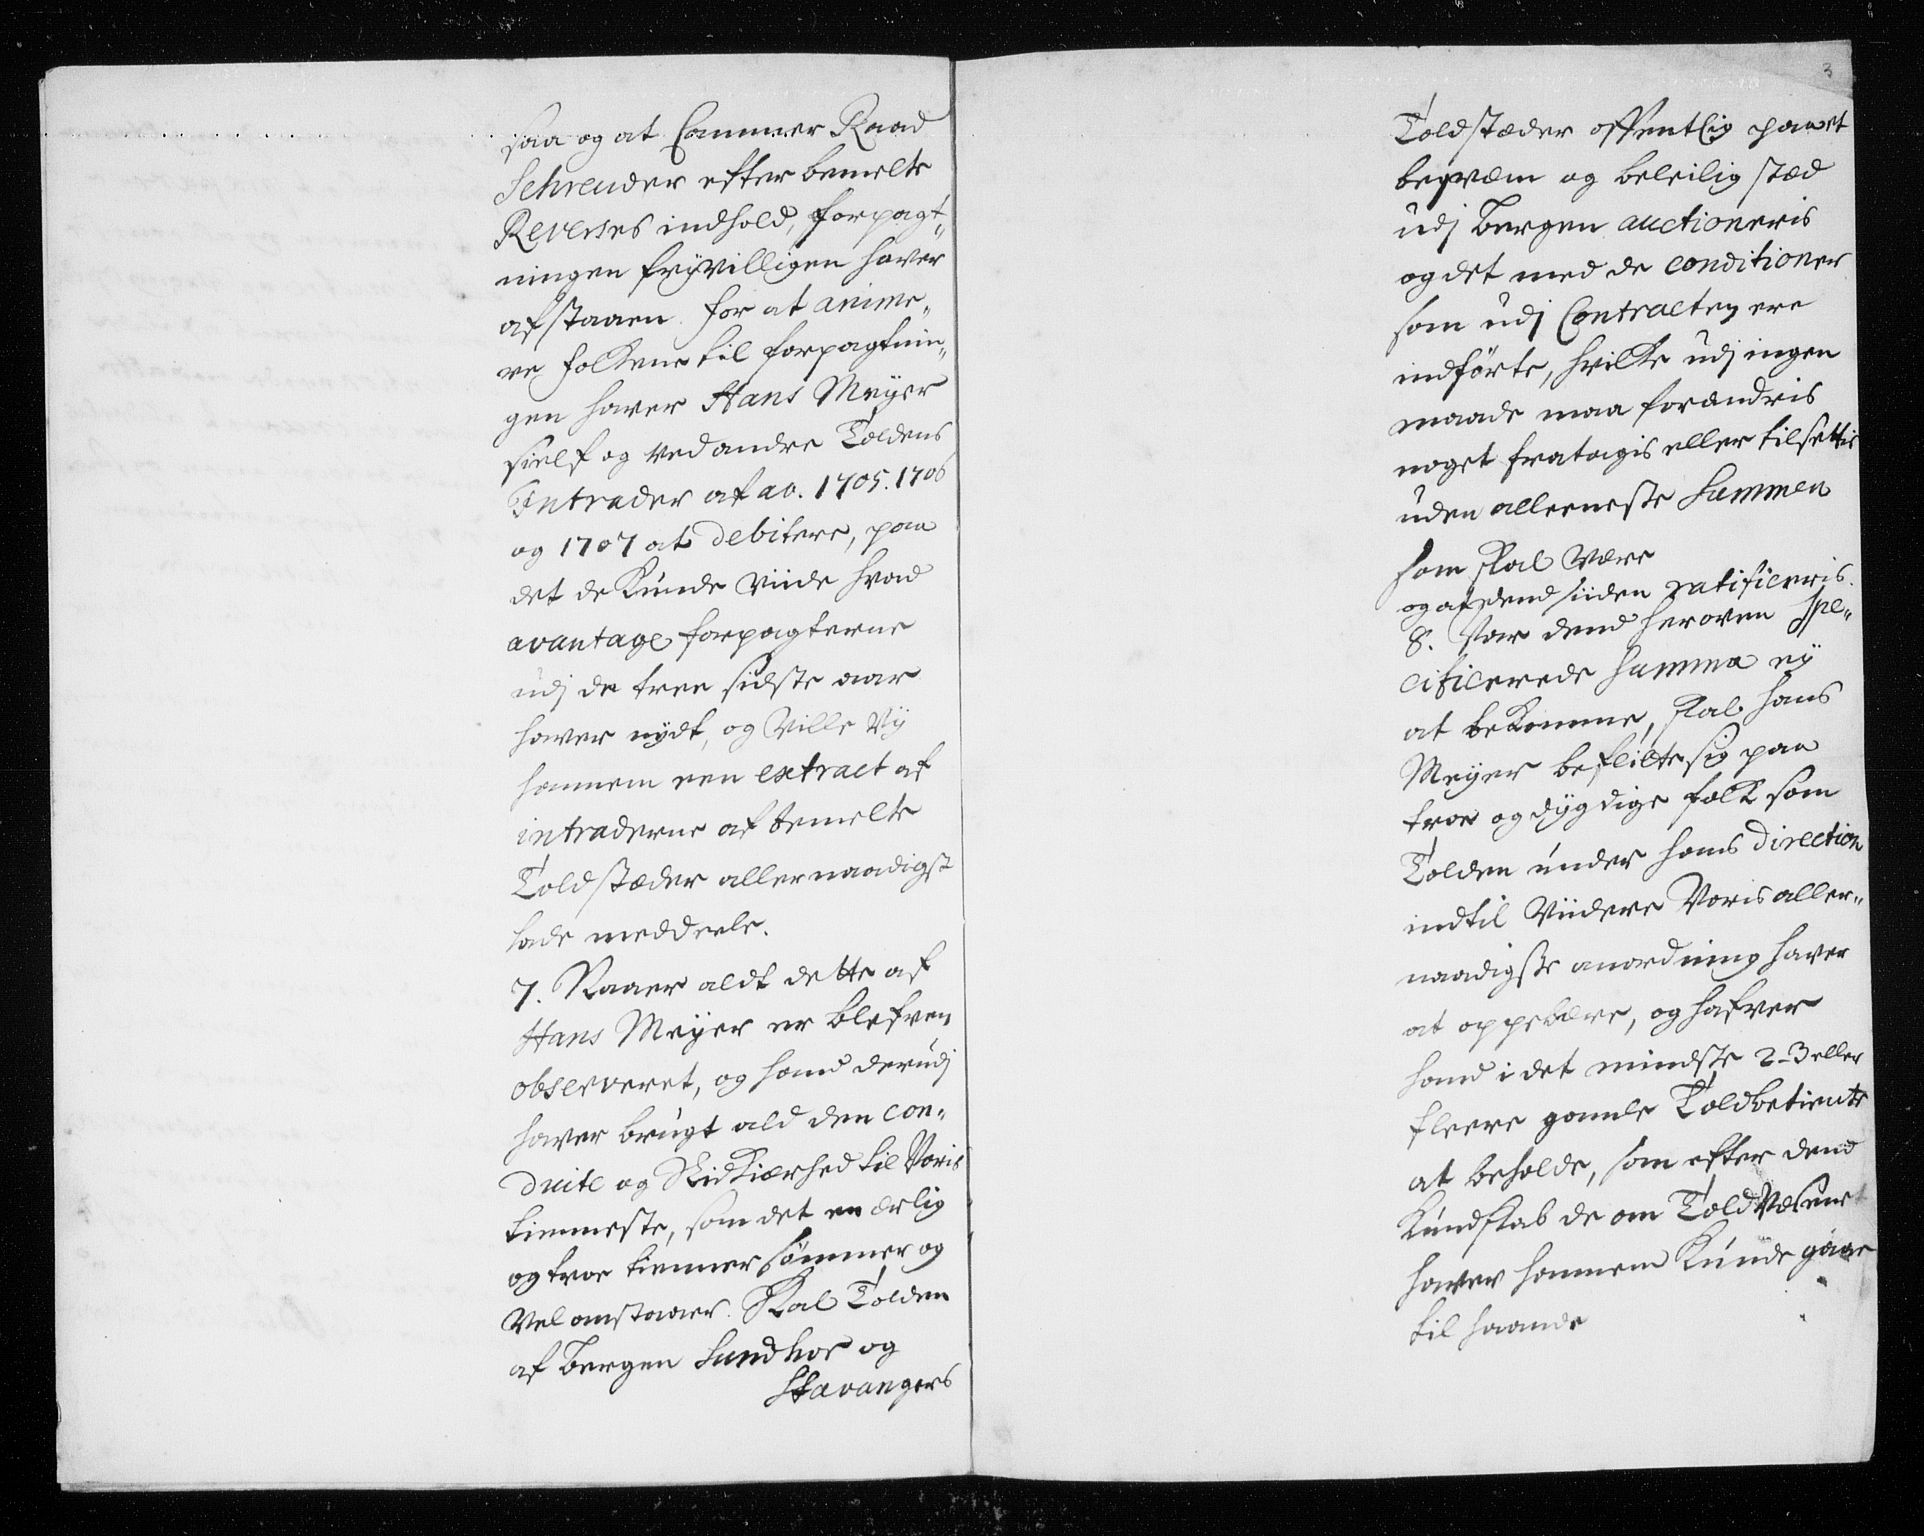 saa og at Cammer Raad
Schreuder efter bemelte
Reverses indhold, forpagt„
ningen frÿvilligen haver
afstaaen. for at anime„
re folkene til forpagtnin„
gen haver Hans Meÿer
sielf og ved andre Toldens
Intrader af ao. 1705. 1706
og 1707 at debitere, paa
det de kunde viide hvad
avantage forpagterne
udj de tree sidste aar
haver nÿdt, og ville Vÿ
hannem een extract af
intraderne af bemelte
Toldstæder allernaadigst
lade meddeele.
7. Naaer aldt dette af
Hans Meÿer er blefven
observeret, og hand derudj
haver brugt ald den con„
duite og Nidkiærhed til Voris
tienneste, som det en ærlig
og troe tienner sömmer og
vel anstaaer. Skal Tolden
af Bergen Sundhor og
Stavangers
3
Toldstæder offentlig paa et
beqvem og beleilig stæd
udj Bergen auctioneris
og det med de conditioner
som udj Contracten ere
indförte, hvilke udj ingen
maade maa forandris
noget fratagis eller tilsettis
uden alleeneste Summen
som skal være
og af dend siiden ratificeris.
8. Var dend heroven spe„
cificerede Summa eÿ
at bekomme, skal Hans
Meÿer beflitte sig paa
troe og dÿgdige folk som
Tolden under hans direction
indtil viidere Voris aller„
naadigste anordning haver
at oppebære, og hafver
hand i det mindste 2-3 eller
fleere gamle Toldbetiente
at beholde, som efter dend
Kundskab de om Told Væsenet
haver hannem kunde gaae
til haande